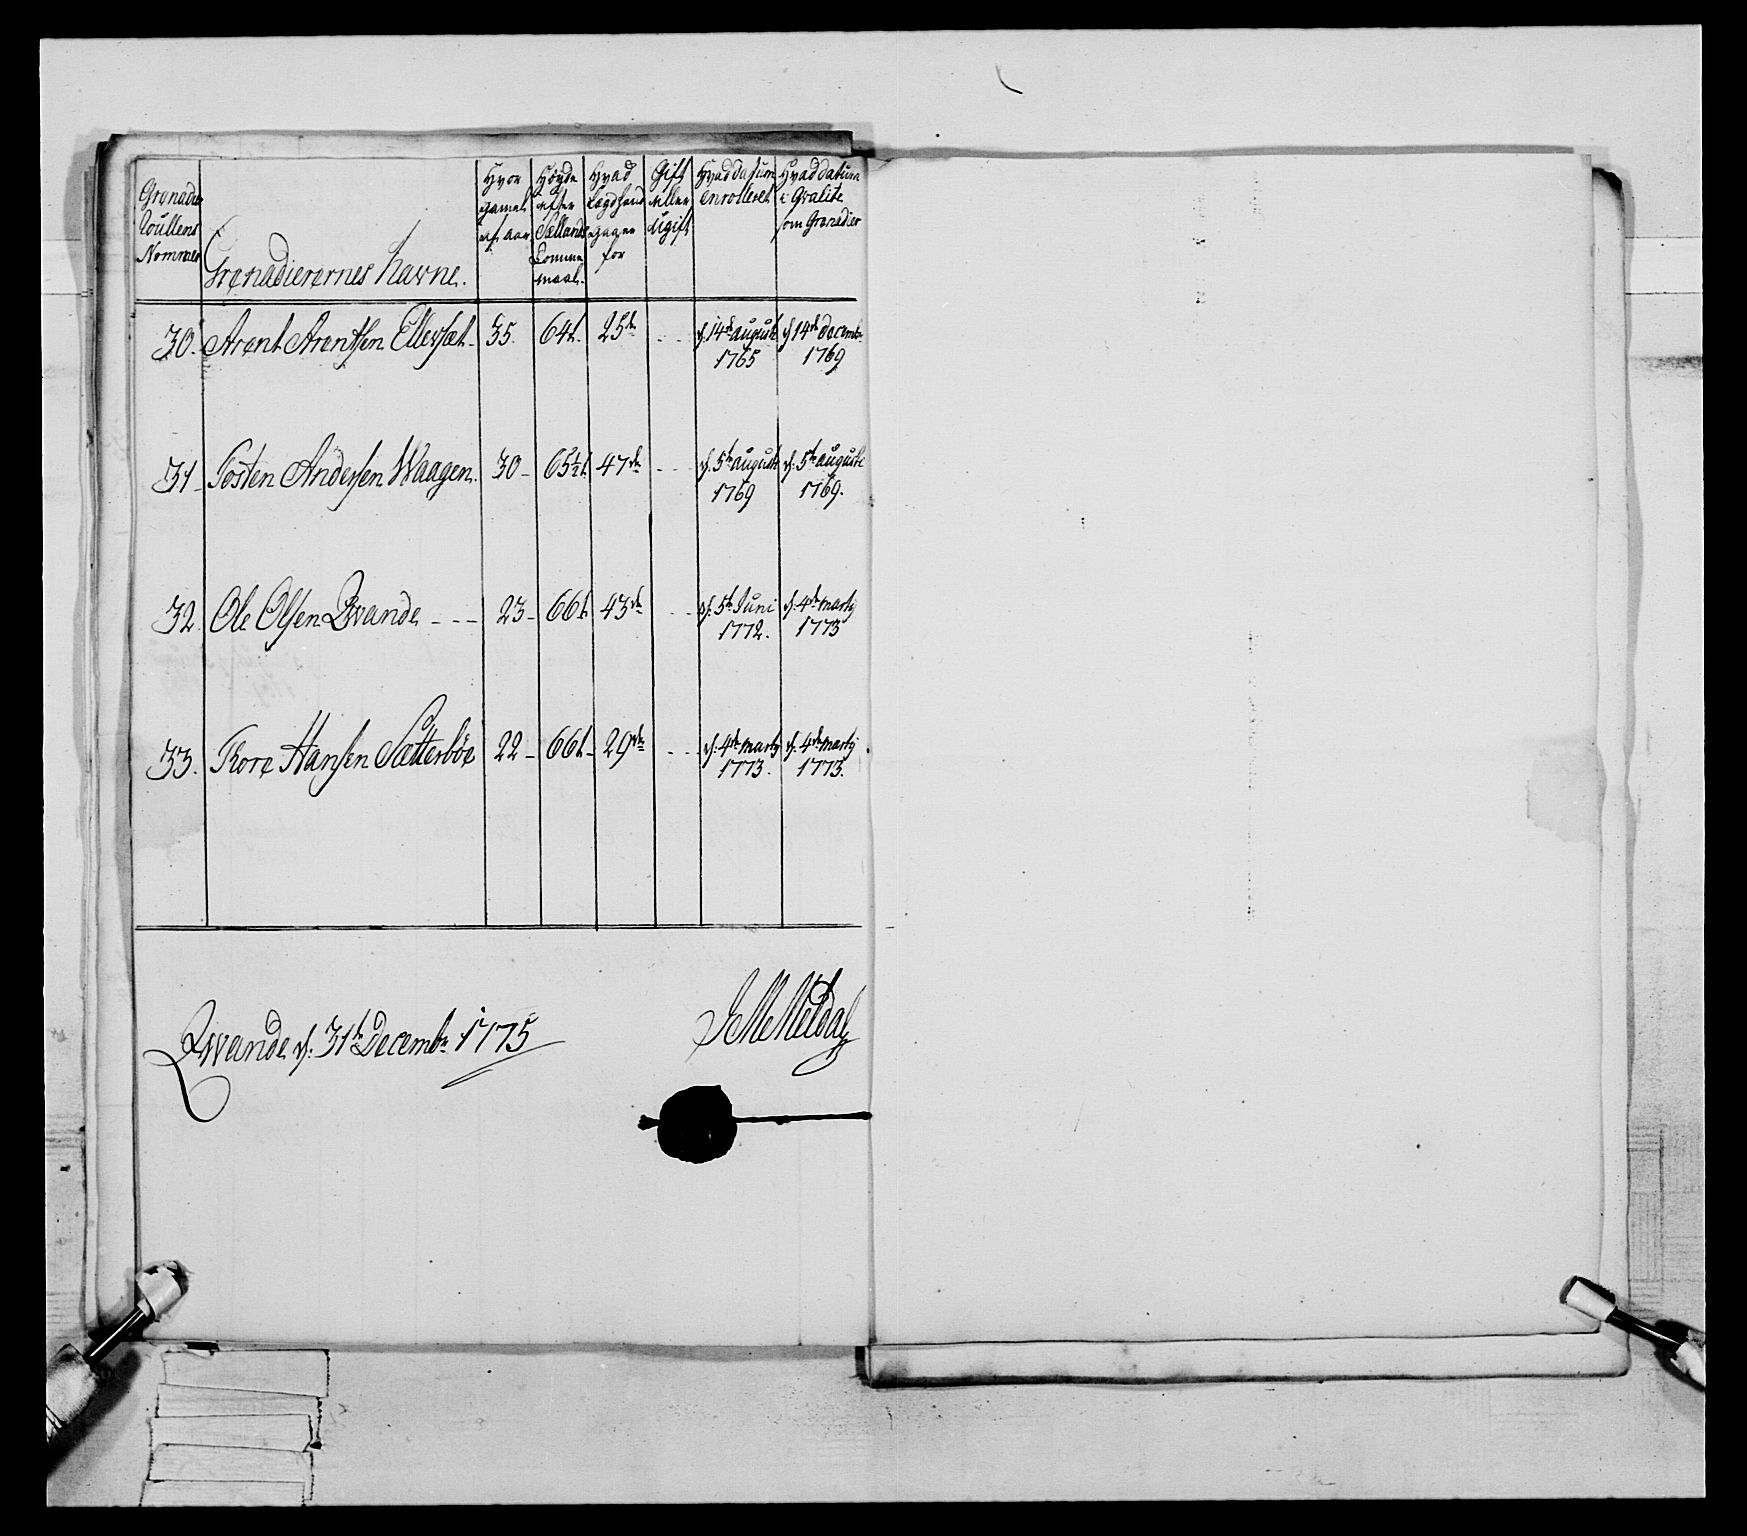 Grenadeer Roullens Nommer | Grenadierernes Navne. | Hvor gamel af Aar | Høyde efter Sællands Tomme maal. | Hvad Lægd hand gaaer for | Gift eller Ugift | Hvad Datum enrolleret | Hvad Datum i Qvalite som Grenadier
30. Arent Arentsen Ellersæt. 35. 64t. 25de - - d. 14de august 1765 d 14de Decembr 1769
31 Tosten Andersen Waagen. 30 - 65½t. 47de - - d. 5te august 1769 d. 5te auguste 1769.
32. Ole Olsen Qvande - - - 23 - 66t. 43de - - d. 5te Juni 1772. d. 4de marty 1773
33. Thore Hansen Sætterbøe 22 - 66t - 29de - - d. 4de marty 1773. d. 4de marty 1773.
Qwande d. 31te Decembr 1775
Meldal